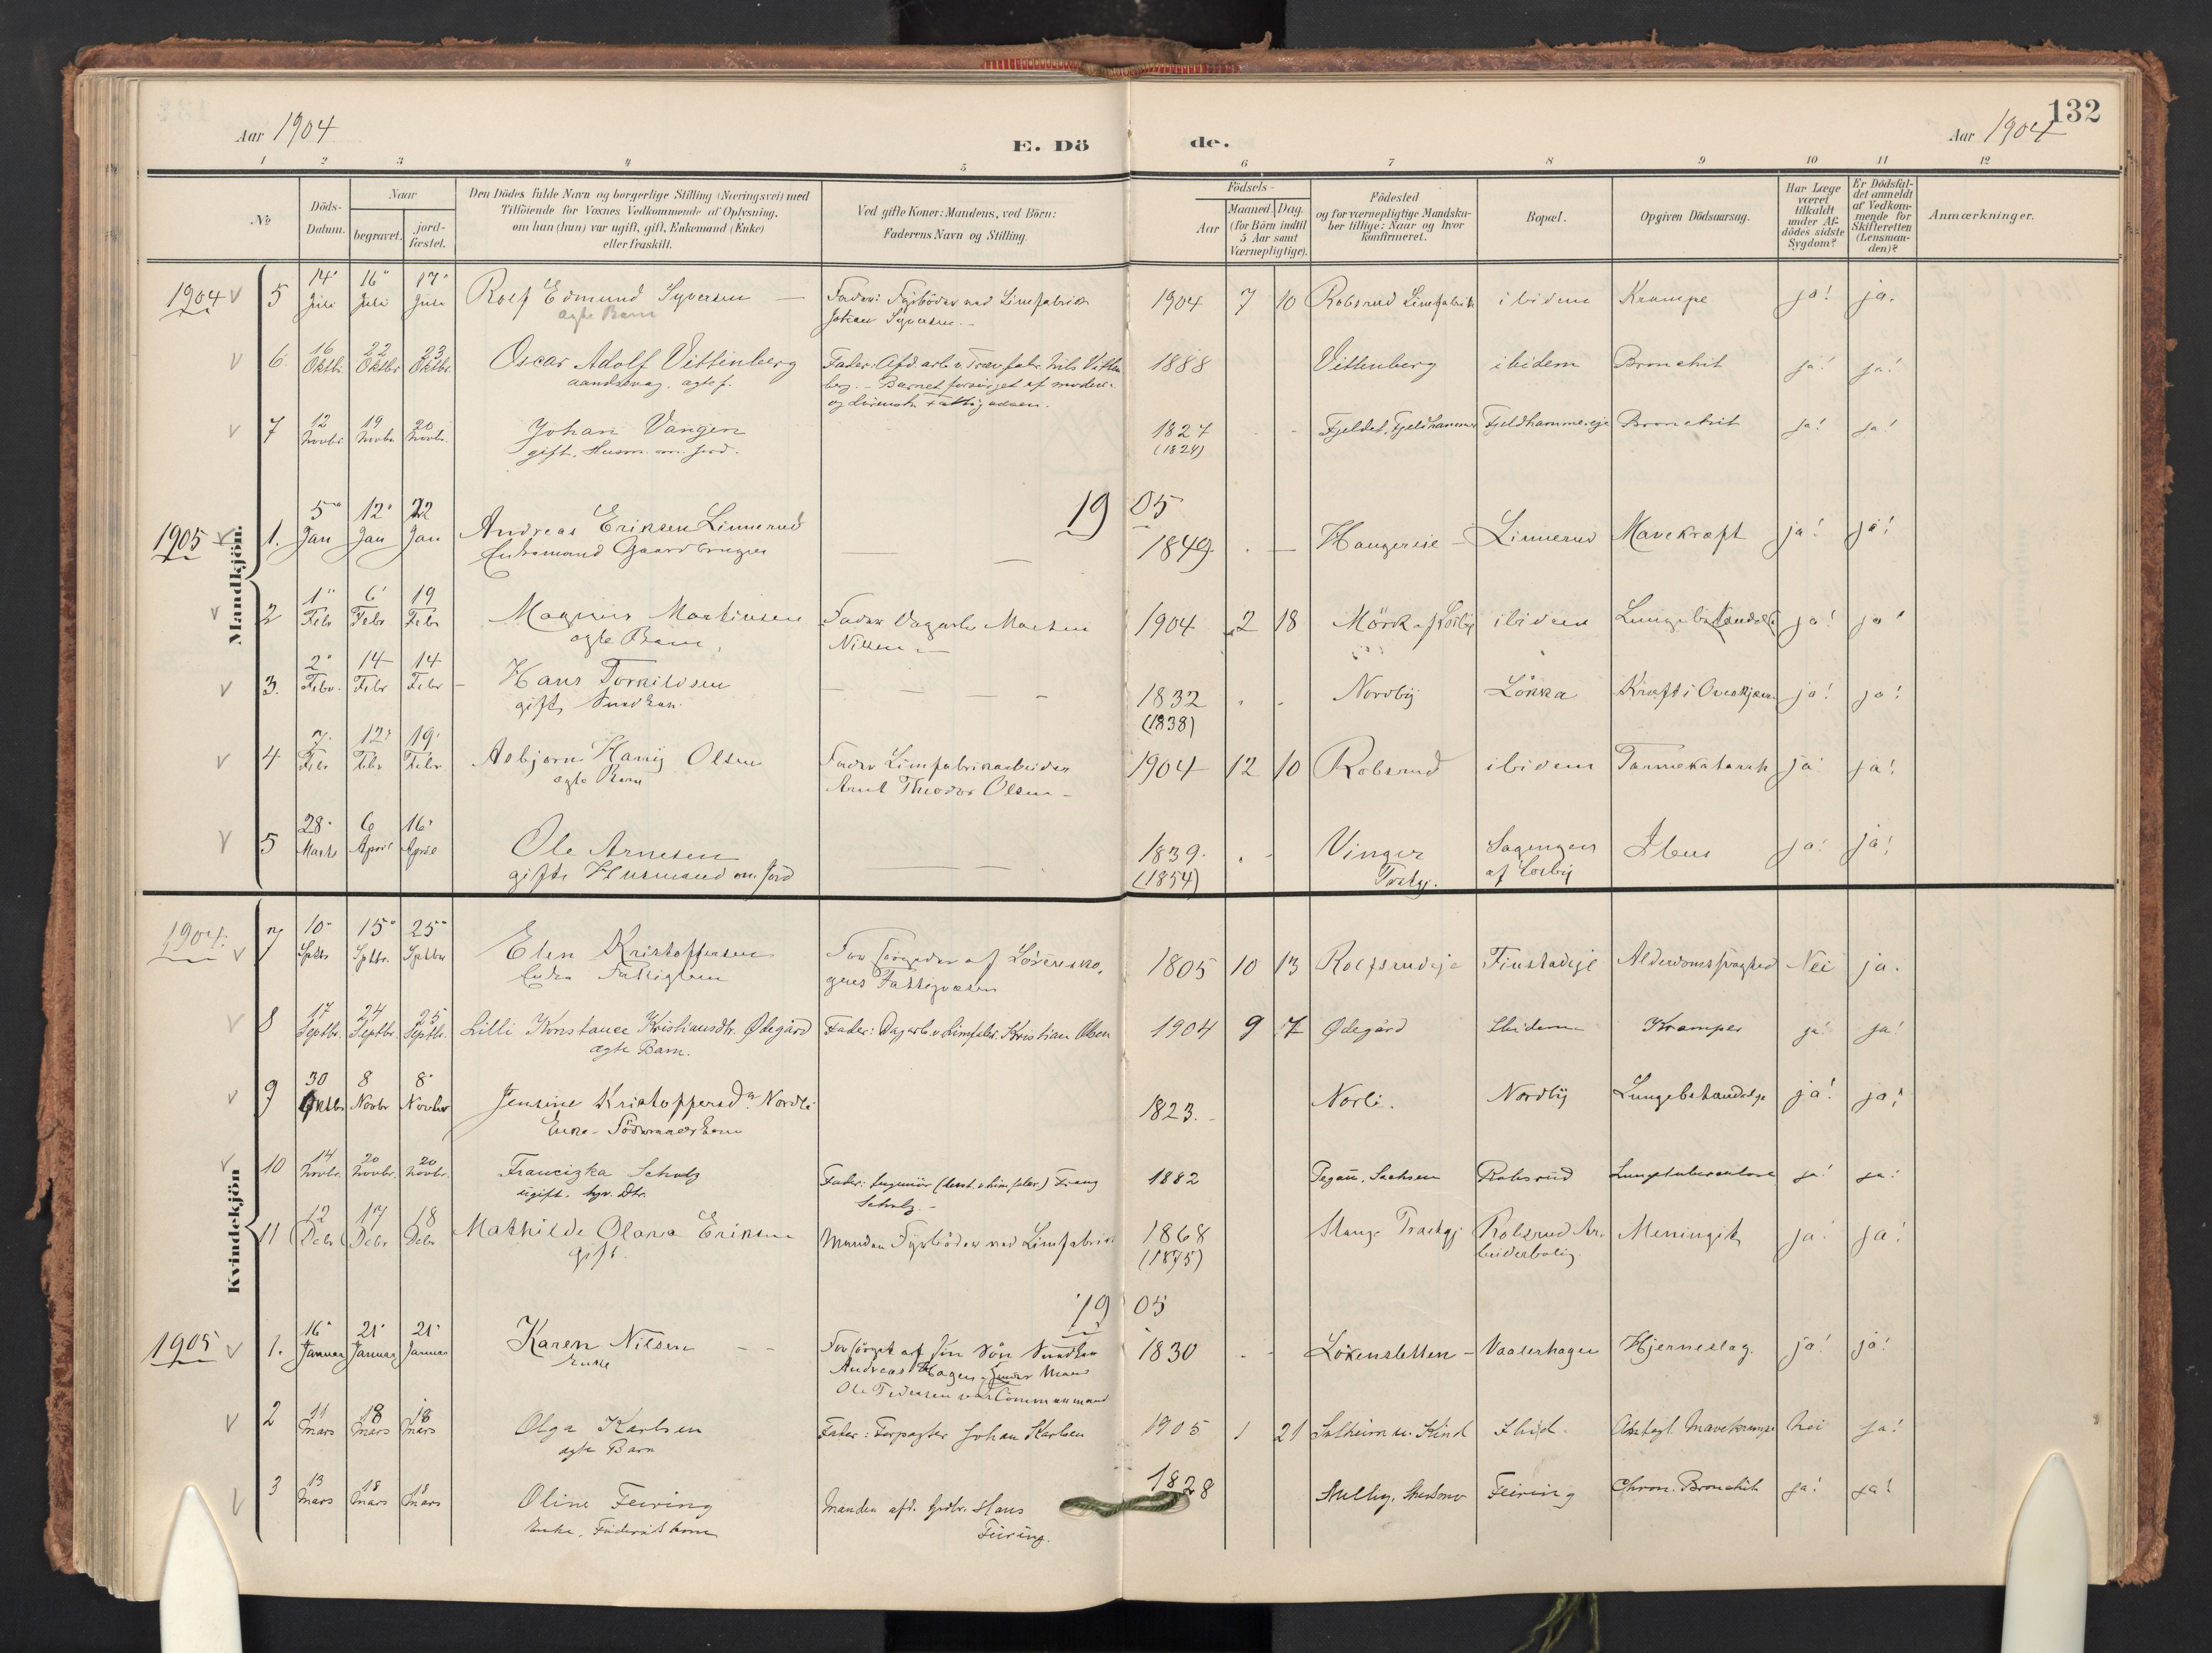 132
Aar 1904
E. Dö de.
Aar 1904
1 2 3 4 5 6 7 8 9 10 11 12
№
Döds-
Datum.
Naar
begravet.
jord-
fæstet.
Den Dödes fulde Navn og borgerlige Stilling (Næringsvei) med
Tilföiende for Voxnes Vedkommende af Oplysning,
om han (hun) var ugift, gift, Enkemand (Enke)
eller fraskilt.
Ved gifte Koner: Mandens, ved Börn:
Faderens Navn og Stilling.
Födsels-
Aar
Maaned. Dag.
(for Börn indtil
5 Aar samt
Værnepligtige).
Födested
og for værnepligtige Mandska-
ber tillige: Naar og hvor
konfirmeret.
Bopæl.
Opgiven Dödsaarsag.
Har Læge
været
tilkaldt
under Af-
dödes sidste
Sygdom?
Er Dödsfal-
det anmeldt
af Vedkom-
mende for
Skifteretten
(Lensman-
den)?
Anmærkninger.
Mandkjön.
1904 5 14 Juli 16 Juli 17 Juli Rolf Edmund Syversen
ægte Barn
Fader: Fyrböder ved Limfabrik
Johan Syversen.
1904 7 10 Robsrud Limfabrik ibidem Krampe ja! ja.
6. 16 Oktbr. 22 Oktbr 23 Oktbr. Oscar Adolf Vittenberg
aandssvag. ægte f.
Fader: Afd. arb. v. Træv.fabr. Nils Vitten
berg. - Barnet forsörget af moderen
og Fattigvæsen.
1888 Vittenberg ibidem Bronchit ja! ja!
7 12 Novbr. 19 Novbr 20 Novbr. Johan Vangen
gift. Husm. m. jord.
1827
(1824)
Fjeldet, Fjeldhammer Fjeldhammereje Bronchit ja! ja!
1905
1905 1. 5 Jan 12 Jan 22 Jan Andreas Eriksen Linnerud
Enkemand Gaardbruger
1849. Haugereie Linnerud Mavekræft ja! ja!
2 1 Febr 6 Febr 19 Febr Magnus Martinsen
ægte Barn
Fader Dagarb. Martin
Nilsen
1904 2 18 Mörk af Losby ibidem ja! ja
3. 2 Febr. 14 Febr 14 Febr Hans Torkildsen
gift,
1832
(1838)
Nordby Lökka Kræft i ja! ja!
4 7. Febr 12 Febr 19 Febr Asbjørn Harry Olsen
ægte Barn
Fader Limfabrikarbeider
Arnt Theodor Olsen
1904 12 10 Robsrud ibidem Tarmekatarrh ja! ja!
5 28 Marts 6 April 16 April Ole Arnesen
gift Husmand m. Jord
1839.
(1854)
Vinger
Prstgj.
Sagengen
af Losby
Ileus ja! ja!
Kvindekjön
1904. 7 10 Sptbr 15 Sptbr. 25 Sptbr Elen Kristoffersen
Enke Fattiglem
Forsörgedes af Lörensko-
gens Fattigvæsen
1805 10 13 Rolfsrudeje Finstadeje Alderdomssvaghed Nei ja.
8 17 Septbr. 24 Septbr. 25 Septbr. Lilli Konstance Kristiansdtr. Ødegård
ægte Barn.
Fader: Dagarb. v. Limfabr. Kristian Olsen
1904 9 7 Ødegård Ibidem Kramper ja! ja!
9 30 Oktbr 8 Novbr 8 Novbr Jensine Kristoffersdr. Nordli
Enke -
1823. Norli. Nordby ja! ja!
10 14 Novbr. 20 Novbr. 20 Novbr. Franciska Scholz
ugift. hjv. Dtr.
Fader: Ingeniör (best. v. Lim.fabr.) Franz
Scholz.
1882 Pegau, Sachsen Robsrud Lungetuberculose ja! ja!
11 12 Debr 17 Debr 18 Debr Mathilde Olava Eriksen
gift.
Manden Fyrböder ved Limfabrik
1868
(1875)
Stange Præstgj Robsrud Ar-
beiderbolig.
Meningit ja! ja!
1905
1905 1. 16 Januar 21 Januar 21 Januar Karen Nilsen
Enke
Forsörget af sin Sön
Andreas Hagen - Mand
Ole Pedersen var Tömmermand
1830 Lökensletten Vaaterhagen Hjerneslag. ja! ja!
2 11 Mars 18 Mars 18 Mars Olga Karlsen
ægte Barn
Fader: Forpagter Johan Karlsen
1905 1 21 Solheim u. Kind Ibid. Antagl. Mavekrampe Nei ja!
3 13 Mars 18 Mars 18 Mars Oline Feiring
Enke, Föderådskone
Manden afd. Grdbr. Hans
Feiring.
1828 Feiring Chron. Bronchit ja! ja!